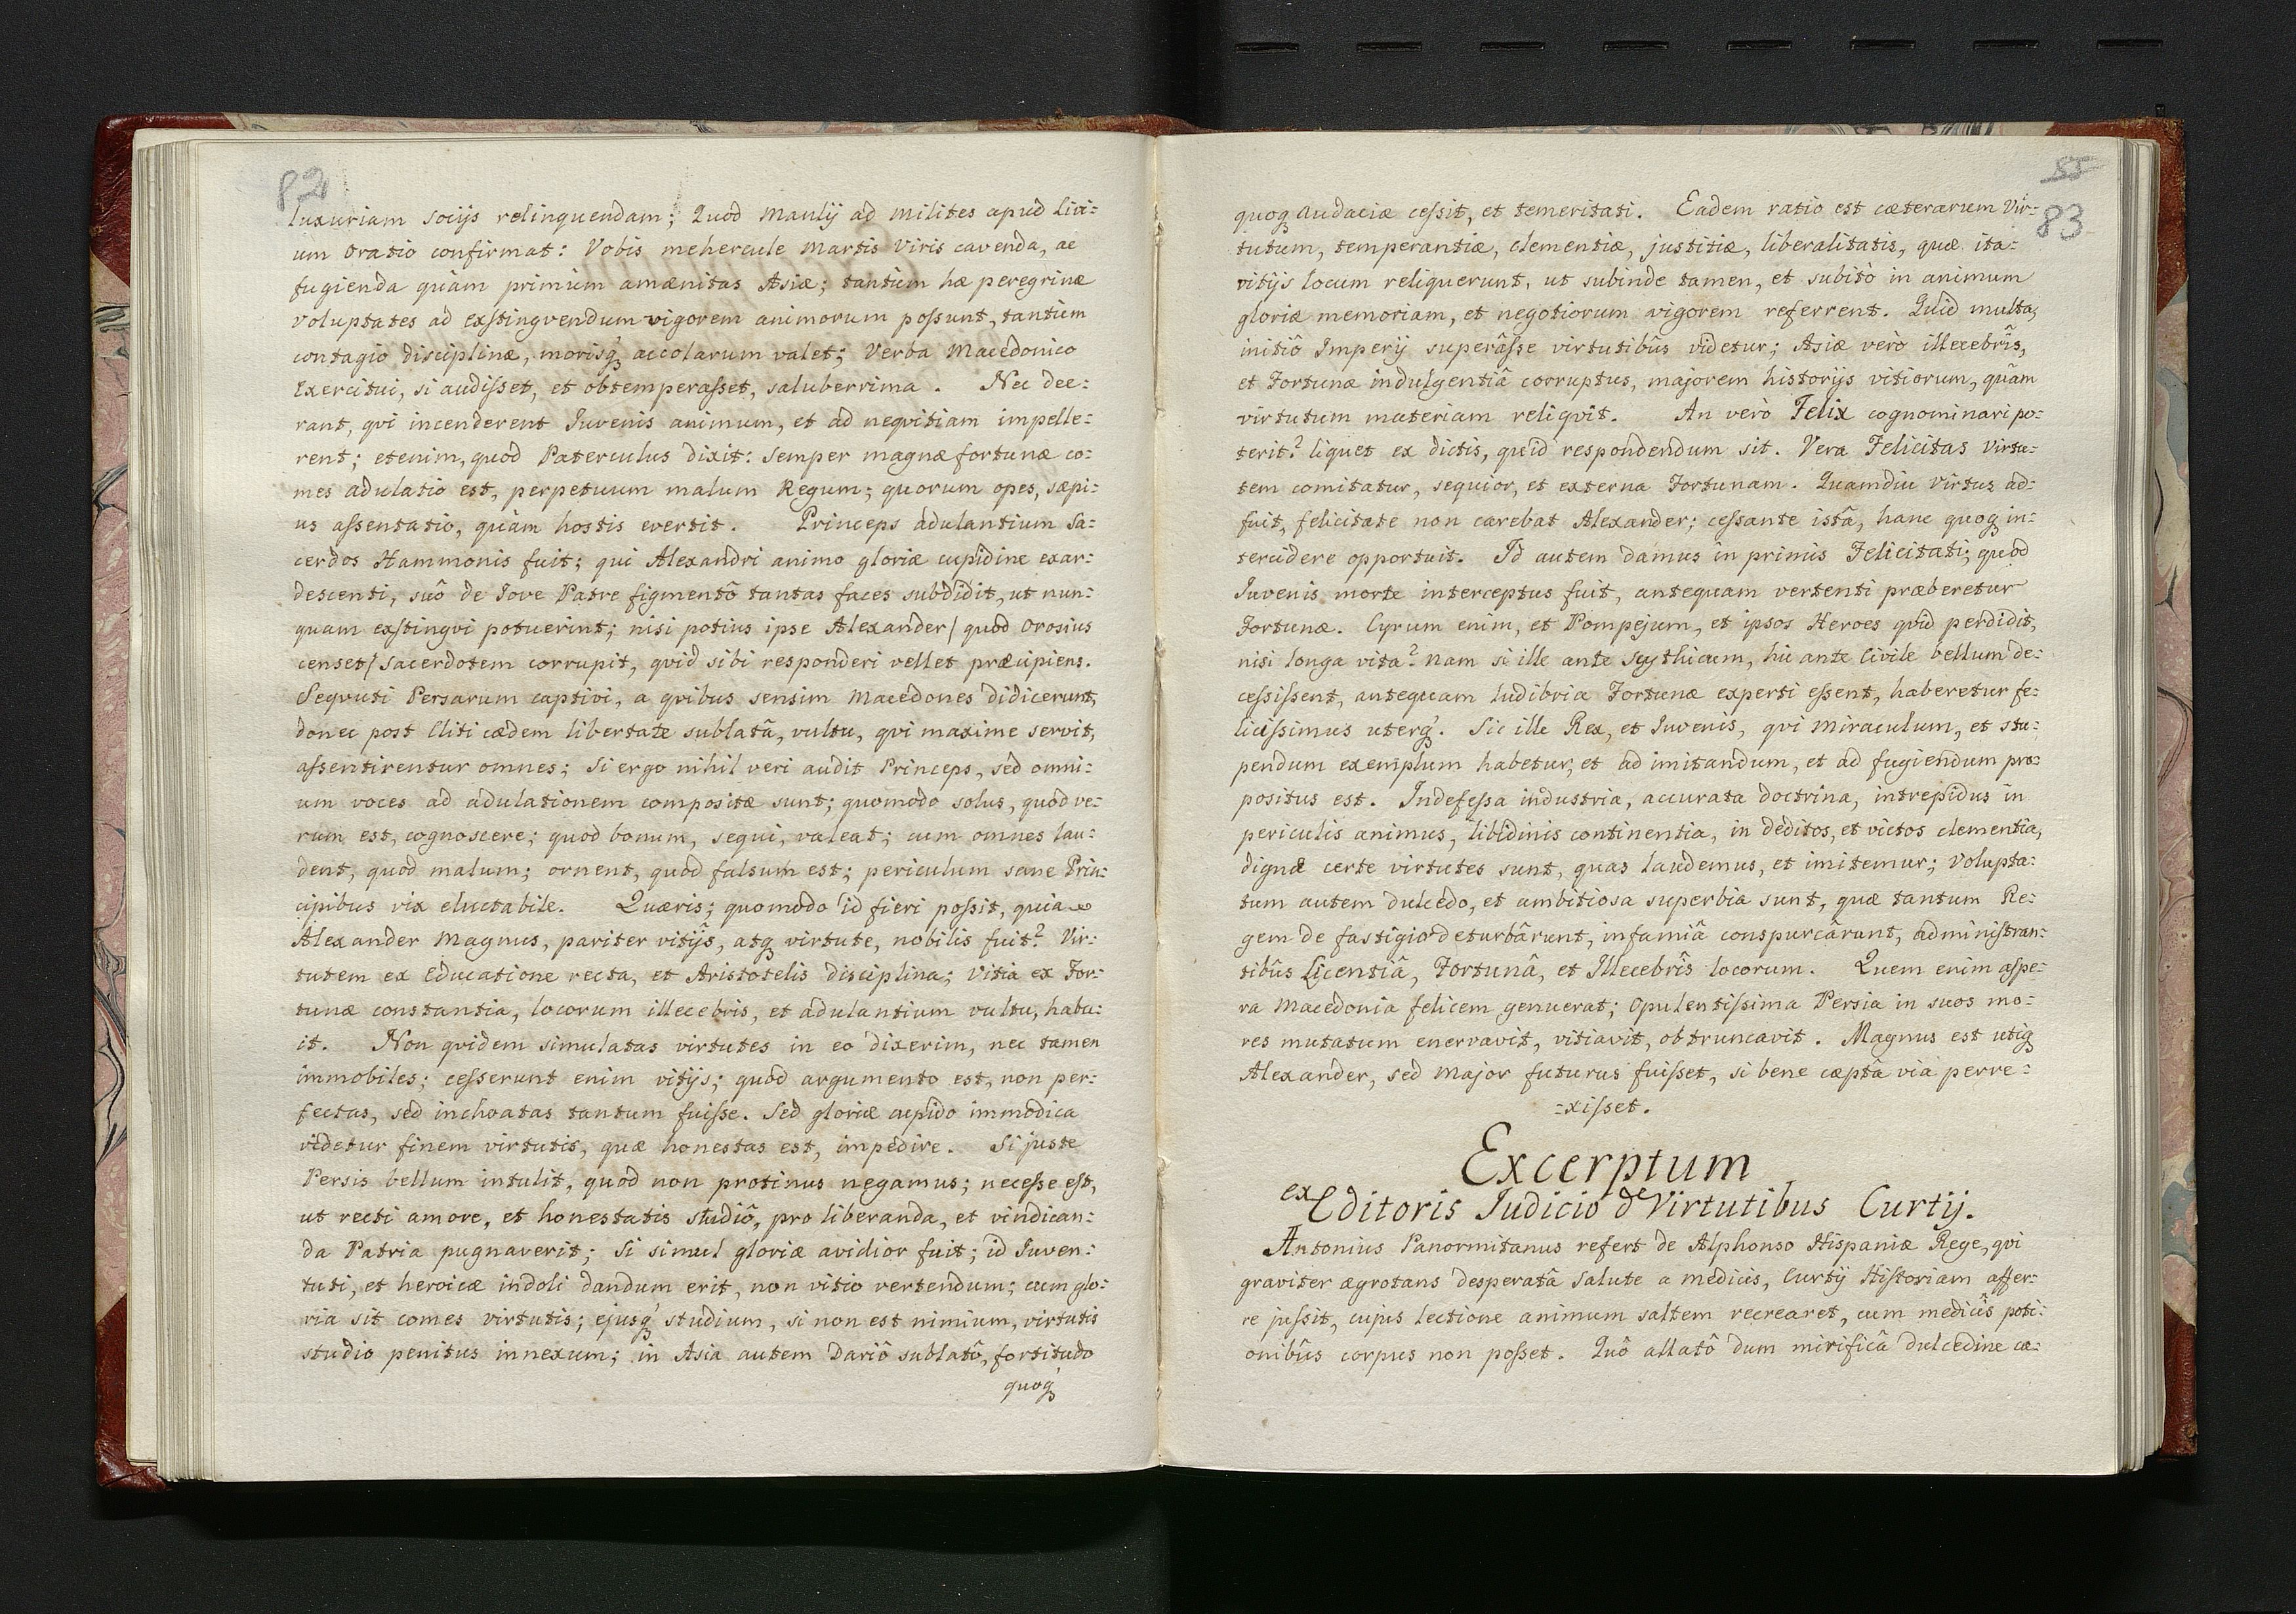 82
luxuriam socijs relinquendam; Quod Manlij ad Milites apud Livi:
um Oratio confirmat: Vobis mehercule Martis Viris cavenda, ac
fugienda quàm primùm amænitas Asiæ; tantùm hæ peregrinæ
voluptates ad exstingvendum vigorem animorum possunt, tantùm
contagio disciplinæ, morisq́ accolarum valet; Verba Macedonico
Exercitui, si audisset, et obtemperasset, saluberrima. Nec dee:
rant, qvi incenderent Iuvenis animum, et ad neqvitiam impelle:
rent; etenim, quod Paterculus dixit: Semper magnæ fortunæ co:
mes adulatio est, perpetuum malum Regum; quorum opes, sæpi:
us assentatio, quàm hostis evertit. Princeps adulantium Sa:
cerdos Hammonis fuit; qui Alexandri animo gloriæ cupidine exar:
descenti, suô de Iove Patre figmentô tantas faces subdidit, ut nun:
quam exstingvi potuerint; nisi potius ipse Alexander / quod Orosius
censet / Sacerdotem corrupit, qvid sibi responderi vellet præcipiens.
Seqvuti Persarum captivi, a qvibus sensim Macedones didicerunt,
donec post Cliti cædem libertate sublatâ, vultu, qvi maxime servit,
assentirentur omnes; Si ergo nihil veri audit Princeps, sed omni:
um voces ad adulationem compositæ sunt; quomodo solus, quod ve:
rum est, cognoscere; quod bonum, sequi, valeat; cum omnes lau:
dent, quod malum; ornent, quod falsum est; periculum sane Prin:
cipibus vix eluctabile. Quæris; quomodo id fieri possit, quia
Alexander Magnus, pariter vitijs, atq virtute, nobilis fuit? Vir:
tutem ex Educatione recta, et Aristotelis disciplina; Vitia ex For:
tunæ constantia, locorum illecebris, et adulantium vultu, habu:
it. Non qvidem simulatas virtutes in eo dixerim, nec tamen
immobiles; cesserunt enim vitijs; quod argumento est, non per:
fectas, sed inchoatas tantum fuisse. Sed gloriæ cupido immodica
videtur finem virtutis, quæ honestas est, impedire. Si juste
Persis bellum intulit, quod non protinus negamus; necesse est,
ut recti amore, et honestatis studiô, pro liberanda, et vindican:
da Patria pugnaverit; Si simul gloriæ avidior fuit; id Iuven:
tuti, et heroicæ indoli dandum erit, non vitio vertendum; cum glo:
ria sit comes virtutis; ejusq́ studium, si non est nimium, virtutis
studio penitus innexum; in Asia autem Dariô sublatô, fortitudo
quoq
55
83
quoq audaciæ cessit, et temeritati. Eadem ratio est cæterarum Vir:
tutum, temperantiæ, clementiæ, justitiæ, liberalitatis, quæ ita:
vitijs locum reliquerunt, ut subinde tamen, et subitò in animum
gloriæ memoriam, et negotiorum vigorem referrent. Quid multa,
initiô Imperij superâsse virtutibûs videtur; Asiæ verò illecebrîs,
et Fortunæ indulgentiâ corruptus, majorem historijs vitiorum, quàm
virtutum materiam reliqvit. An verò Felix cognominari po:
terit? liquet ex dictis, quid respondendum sit. Vera Felicitas Virtu:
tem comitatur, sequior, et externa Fortunam. Quamdiu Virtus ad:
fuit, felicitate non carebat Alexander; cessante istâ, hanc quoq in:
tercidere opportuit. Id autem damus in primis Felicitati; quod
Iuvenis morte interceptus fuit, antequam vertenti præberetur
Fortunæ. Cyrum enim, et Pompejum, et ipsos Heroes qvid perdidit,
nisi longa vita? Nam si ille ante Scythicum, hic ante Civile bellum de:
cessissent, antequam ludibria Fortunæ experti essent, haberetur fe:
licissimus uterq́. Sic ille Rex, et Iuvenis, qvi Miraculum, et stu:
pendum exemplum habetur, et ad imitandum, et ad fugiendum pro:
positus est. Indefessa industria, accurata doctrina, intrepidus in
periculis animus, libidinis continentia, in deditos, et victos clementia,
dignæ certe virtutes sunt, quas laudemus, et imitemur; Volupta:
tum autem dulcedo, et ambitiosa superbia sunt, quæ tantum Re:
gem de fastigio deturbârunt, infamiâ conspurcârunt, administran:
tibûs Licentiâ, Fortunâ, et Illecebrîs locorum. Quem enim aspe:
ra Macedonia felicem genuerat; Opulentissima Persia in suos mo:
res mutatum enervavit, vitiavit, obtruncavit. Magnus est utiq
Alexander, sed Major futurus fuisset, si bene cæpta via perre:
:xisset.
Excerptum
ex Editoris Iudicio de Virtutibus Curtij.
Antonius Panormitanus refert de Alphonso Hispaniæ Rege, qvi
graviter ægrotans desperatâ salute a medicis, Curtij Historiam affer:
re jussit, cujus lectione animum saltem recrearet, cum medicîs poti:
onibûs corpus non posset. Quô allatô dum mirificâ dulcedine ca: